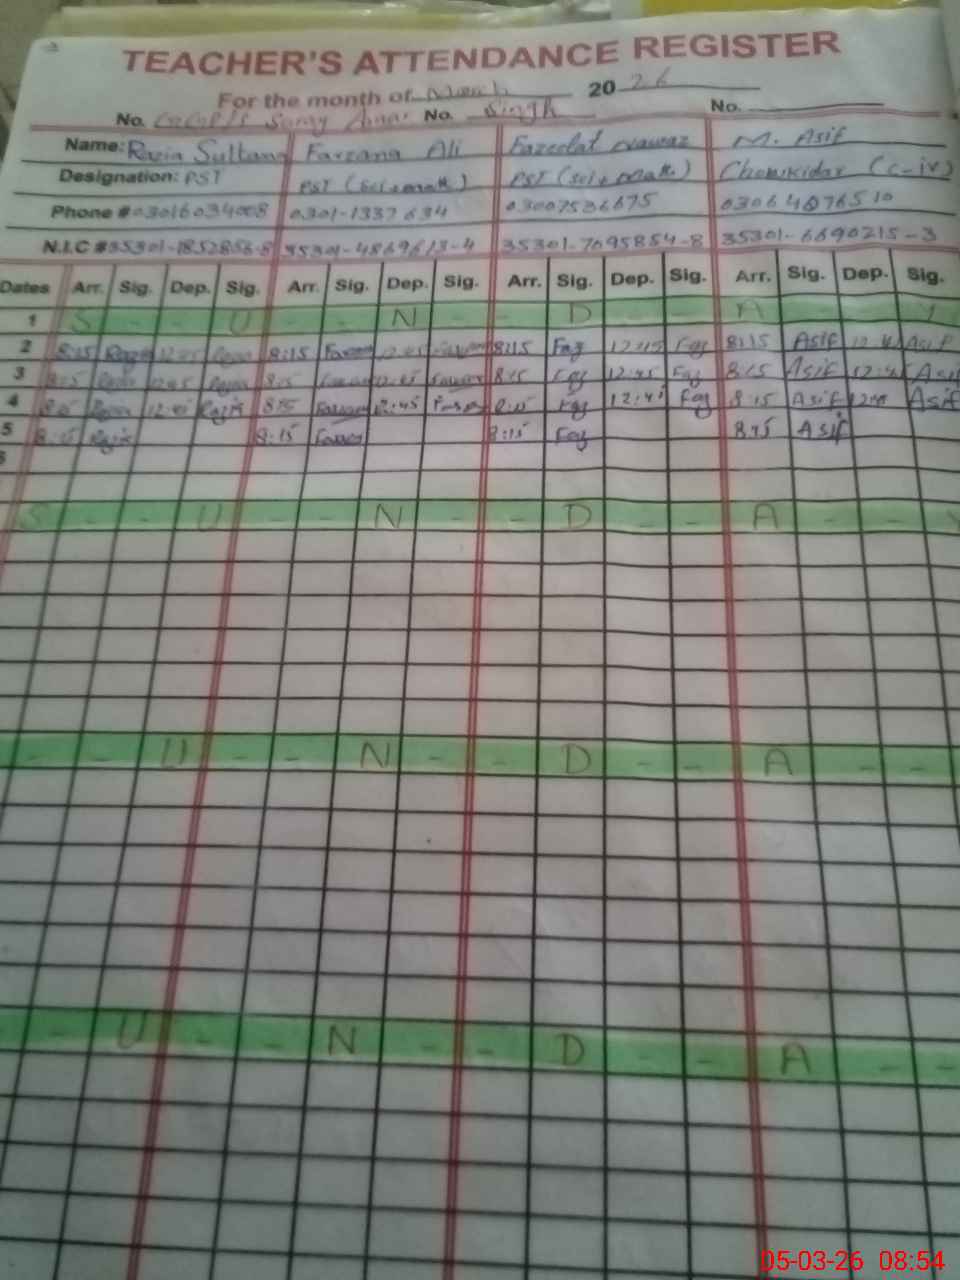 TEACHER'S ATTENDANCE REGISTER
For the month of March 2026
No. No. Singh No.
Name: Razia Sultana Farzana Ali Fazeelat Nawaz M. Asif
Designation: PST PST (Sci+math) PST (sci+Math) Chowkidar (C-iv)
Phone # 03016034008 0301-1337634 03007536675 03064076510
N.I.C # 35301-1852856-8 35301-4869613-4 35301-7095854-8 35301-6690215-3
Dates Arr. Sig. Dep. Sig. Arr. Sig. Dep. Sig. Arr. Sig. Dep. Sig. Arr. Sig. Dep. Sig.
1 S - - U - - N - - D - - A - - Y
2 8:15 8:15 8:15 Faz 12:45 Faz 8:15 Asif Asif
3 8:15 12:45 8:15 12:45 8:15 Faz 12:45 Faz 8:15 Asif 12:45 Asif
4 8:15 12:45 Razia 8:15 12:45 8:15 Faz 12:45 Faz 8:15 Asif Asif
5 8:15 Razia 8:15 8:15 Faz 8:15 Asif
6
S - - U - - N - - D - - A - - Y
- - U - - N - - D - - A - -
- - U - - N - - D - - A - -
05-03-26 08:54